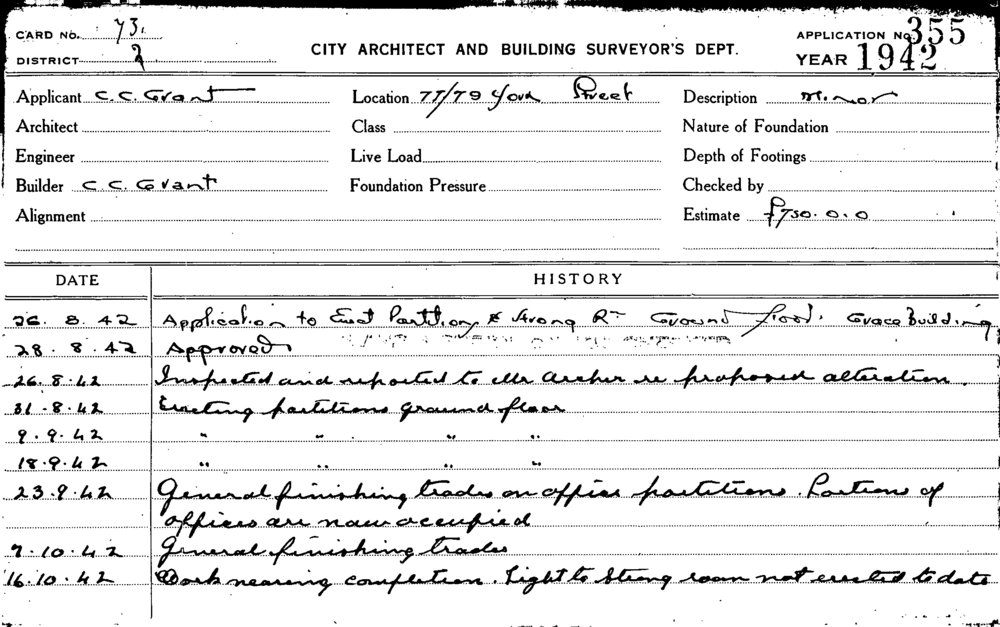 CARD No. 73.
DISTRICT 2
CITY ARCHITECT AND BUILDING SURVEYOR'S DEPT.
APPLICATION No. 355
YEAR 1942
Applicant C. C. Grant
Location 77/79 York Street
Description Minor
Architect
Class
Nature of Foundation
Engineer
Live Load
Depth of Footings
Builder C. C. Grant
Foundation Pressure
Checked by
Alignment
Estimate £750. 0. 0
DATE HISTORY
26. 8. 42 Application to Erect Partition & Strong Rm Ground floor. Grace Building
28. 8. 42 Approved
26. 8. 42 Inspected and reported to Mr Archer re proposed alteration.
31. 8. 42 Erecting partitions ground floor
9. 9. 42 " " " "
18. 9. 42 " " " "
23. 9. 42 General finishing trades on office partitions. Portions of
offices are now occupied
7. 10. 42 General finishing trades
16. 10. 42 Work nearing completion. Light to Strong room not erected to date